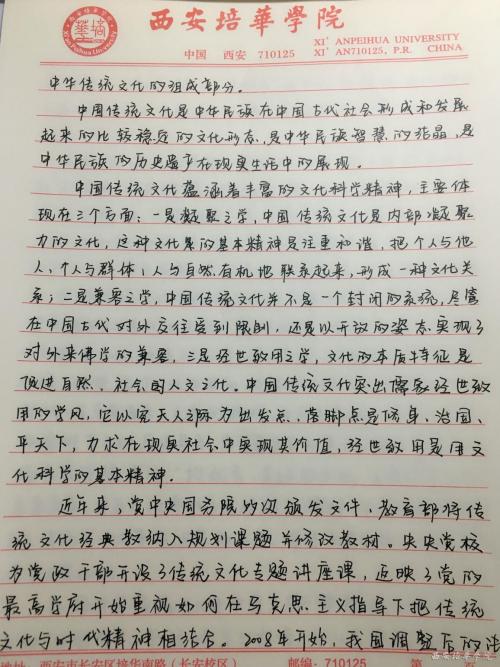 西安培華學院
中国 西安 710125
XI' ANPEIHUA UNIVERSITY
XI' AN710125, P.R. CHINA
中华传统文化的组成部分。
中国传统文化是中华民族在中国古代社会形成和发展
起来的比较稳定的文化形态,是中华民族智慧的结晶,是
中华民族的历史遗产在现实生活中的展现。
中国传统文化蕴涵着丰富的文化科学精神,主要体
现在三个方面:一是凝聚之学,中国传统文化是内部凝聚
力的文化,这种文化的基本精神是注重和谐,把个人与他
人、个人与群体、人与自然有机地联系起来,形成一种文化关
系;二是兼容之学,中国传统文化并不是一个封闭的系统,尽管
在中国古代对外交往受到限制,还是以开放的姿态实现了
对外来佛学的兼容,三是经世致用之学,文化的本质特征是
促进自然、社会的人文之化。中国传统文化突出儒家经世致
用的学风,它以究天人之际为出发点,落脚点是修身、治国、
平天下,力求在现实社会中实现其价值,经世致用是文
化科学的基本精神。
近年来,党中央国务院多次颁发文件、教育部将传
统文化经典教纳入规划课题并修改教材。中央党校
为党政干部开设了传统文化专题讲座课,反映了党的
最高学府开始重视如何在马克思主义指导下把传统
文化与时代精神相结合。2008年开始,我国调整后的法
地址:西安市长安区培华南路(长安校区) 邮编:710125